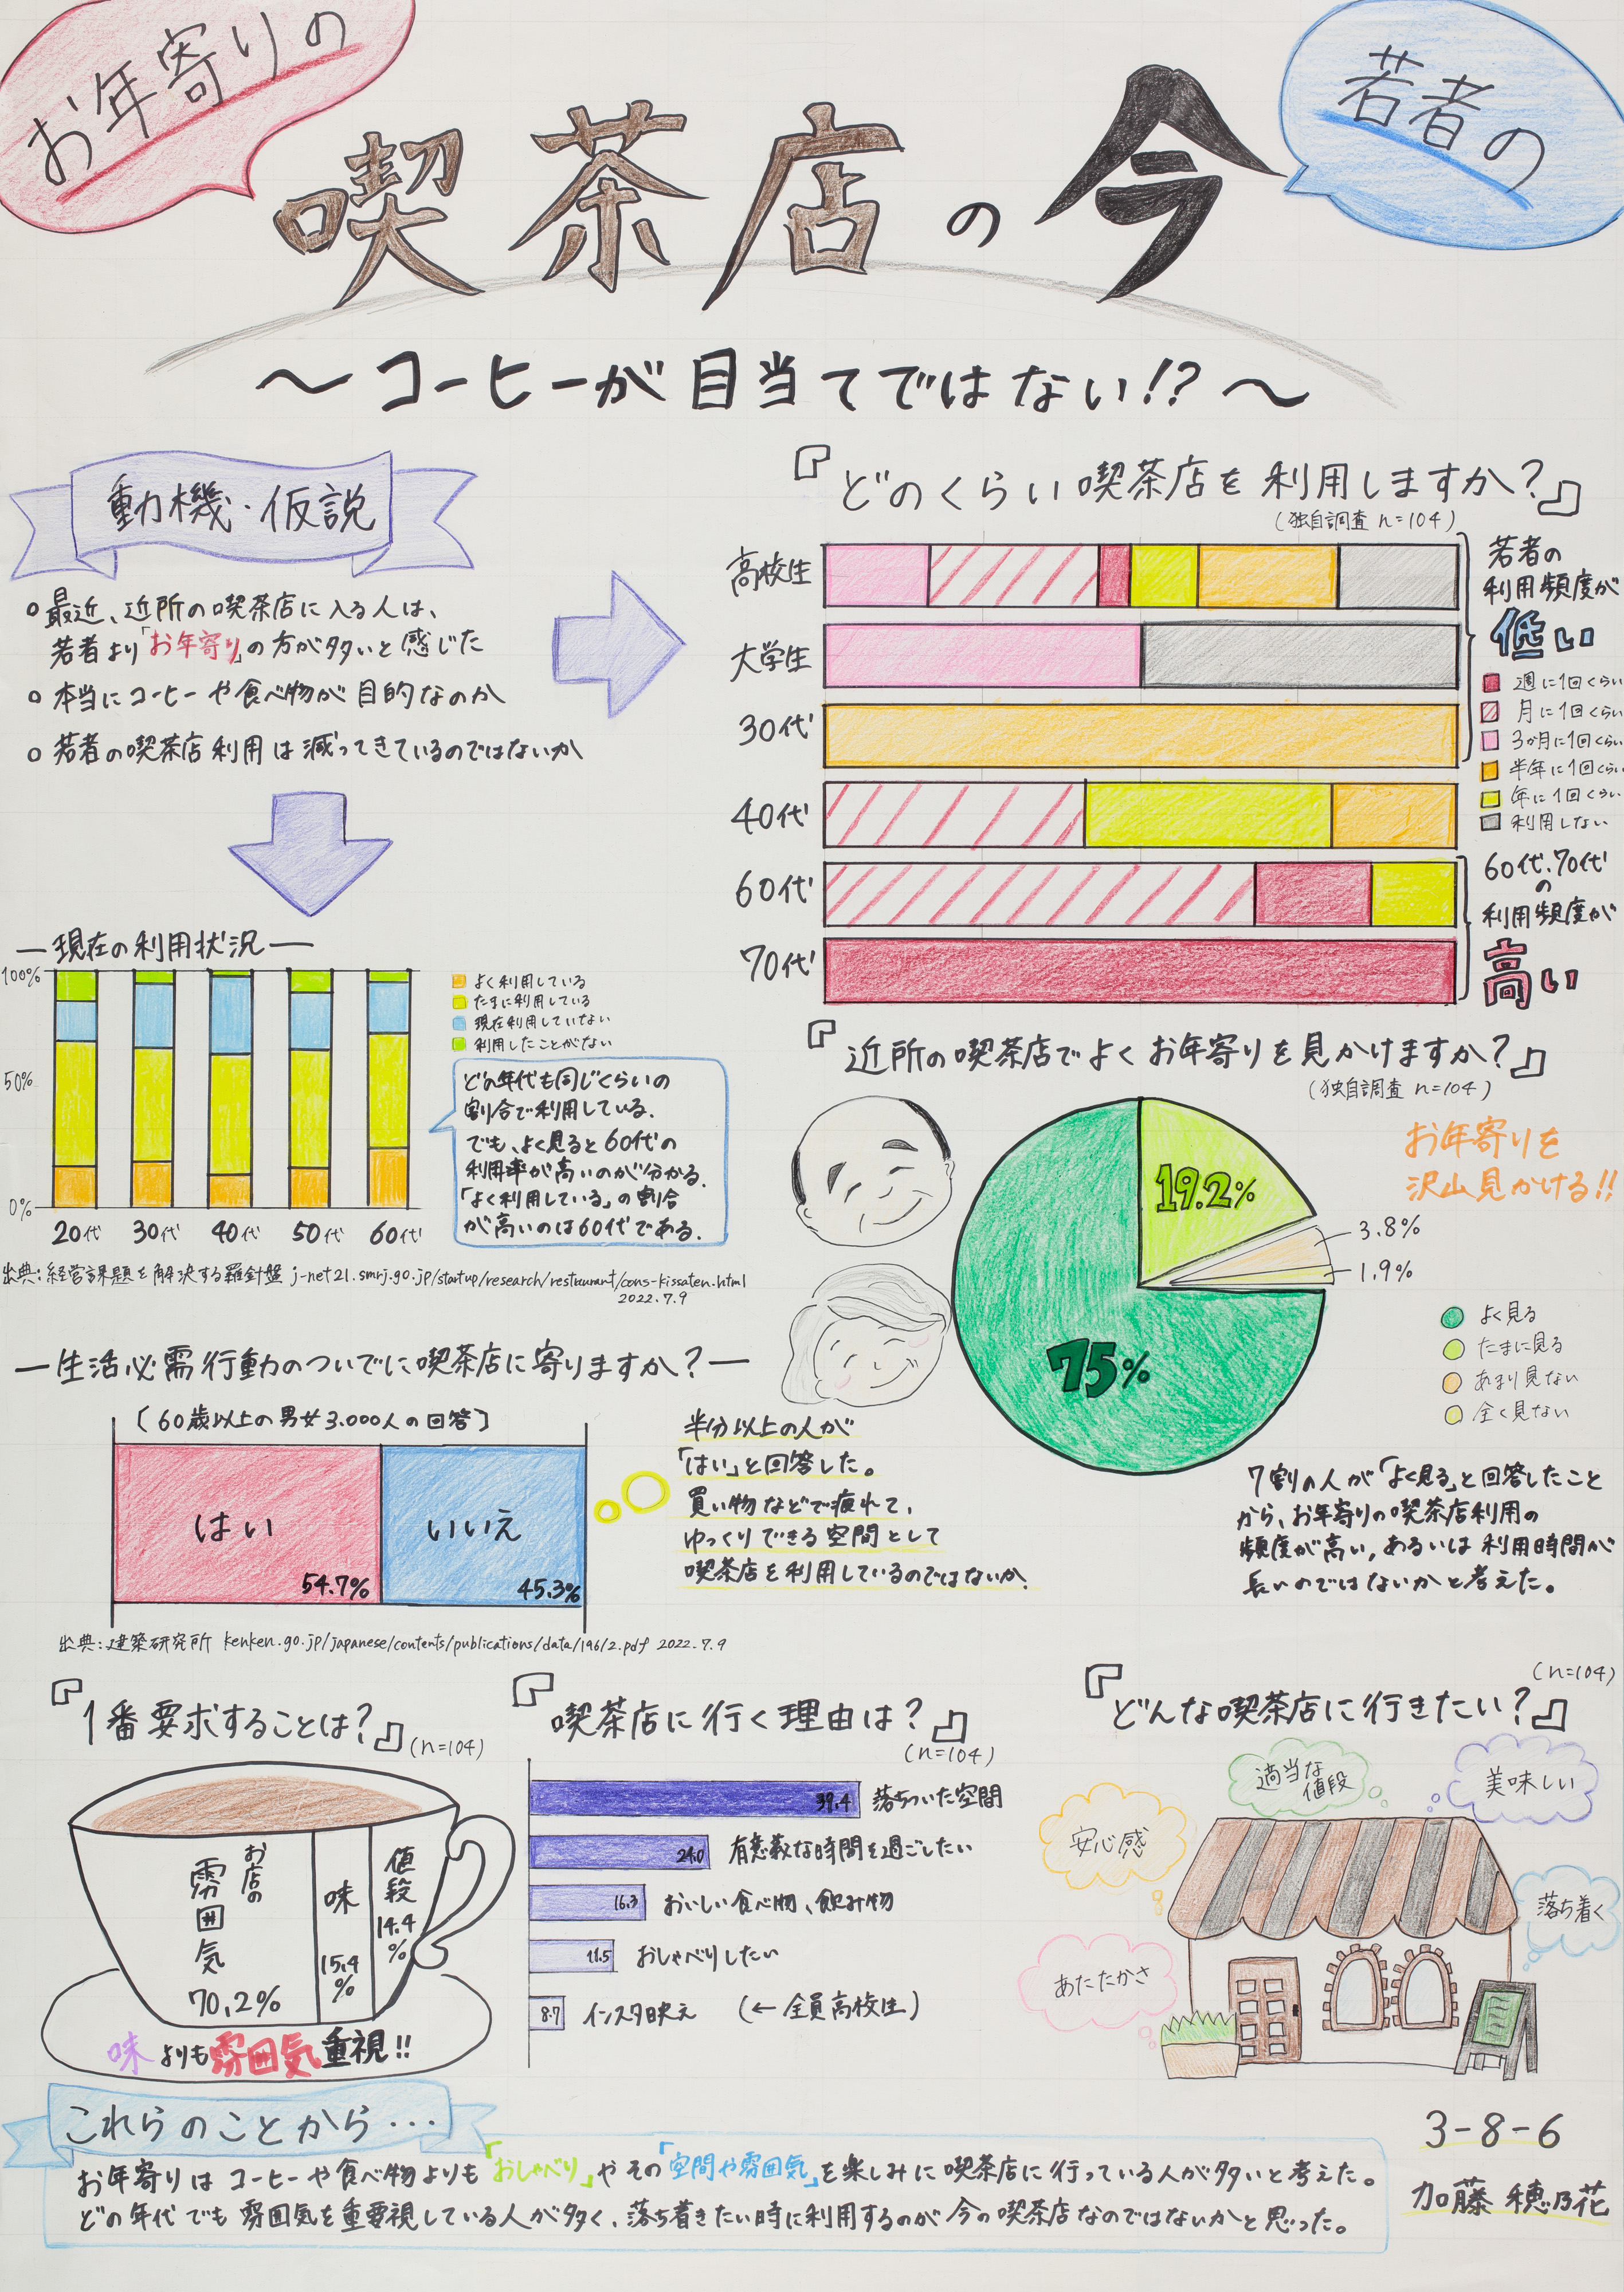 お年寄りの
若者の
喫茶店の今
～コーヒーが目当てではない!?～
動機・仮説
○最近、近所の喫茶店に入る人は、
若者より「お年寄り」の方が多いと感じた
○本当にコーヒーや食べ物が目的なのか
○若者の喫茶店利用は減ってきているのではないか
『どのくらい喫茶店を利用しますか?』
(独自調査 n=104)
高校生
大学生
30代
40代
60代
70代
若者の
利用頻度が
低い
週に1回くらい
月に1回くらい
3か月に1回くらい
半年に1回くらい
年に1回くらい
利用しない
60代、70代
の
利用頻度が
高い
―現在の利用状況―
100%
50%
0%
20代 30代 40代 50代 60代
よく利用している
たまに利用している
現在利用していない
利用したことがない
どの年代も同じくらいの
割合で利用している。
でも、よく見ると60代の
利用率が高いのが分かる。
「よく利用している」の割合
が高いのは60代である。
出典:経営課題を解決する羅針盤 j-net21.smrj.go.jp/startup/research/restaurant/cons-kissaten.html
2022.7.9
『近所の喫茶店でよくお年寄りを見かけますか?』
(独自調査 n=104)
お年寄りを
沢山見かける!!
19.2%
3.8%
1.9%
75%
よく見る
たまに見る
あまり見ない
全く見ない
7割の人が「よく見る」と回答したこと
から、お年寄りの喫茶店利用の
頻度が高い、あるいは利用時間が
長いのではないかと考えた。
―生活必需行動のついでに喫茶店に寄りますか?―
〔60歳以上の男女3.000人の回答〕
はい
54.7%
いいえ
45.3%
半分以上の人が
「はい」と回答した。
買い物などで疲れて、
ゆっくりできる空間として
喫茶店を利用しているのではないか。
出典:建築研究所 kenken.go.jp/japanese/contents/publications/data/196/2.pdf 2022.7.9
『1番要求することは?』
(n=104)
お店の
雰囲気
70.2%
味
15.4%
値段
14.4%
味よりも雰囲気重視!!
『喫茶店に行く理由は?』
(n=104)
39.4 落ちついた空間
24.0 有意義な時間を過ごしたい
16.3 おいしい食べ物、飲み物
11.5 おしゃべりしたい
8.7 インスタ映え (←全員高校生)
(n=104)
『どんな喫茶店に行きたい?』
適当な
値段
美味しい
安心感
落ち着く
あたたかさ
これらのことから・・・
お年寄りはコーヒーや食べ物よりも「おしゃべり」やその「空間や雰囲気」を楽しみに喫茶店に行っている人が多いと考えた。
どの年代でも雰囲気を重要視している人が多く、落ち着きたい時に利用するのが今の喫茶店なのではないかと思った。
3-8-6
加藤 穂乃花